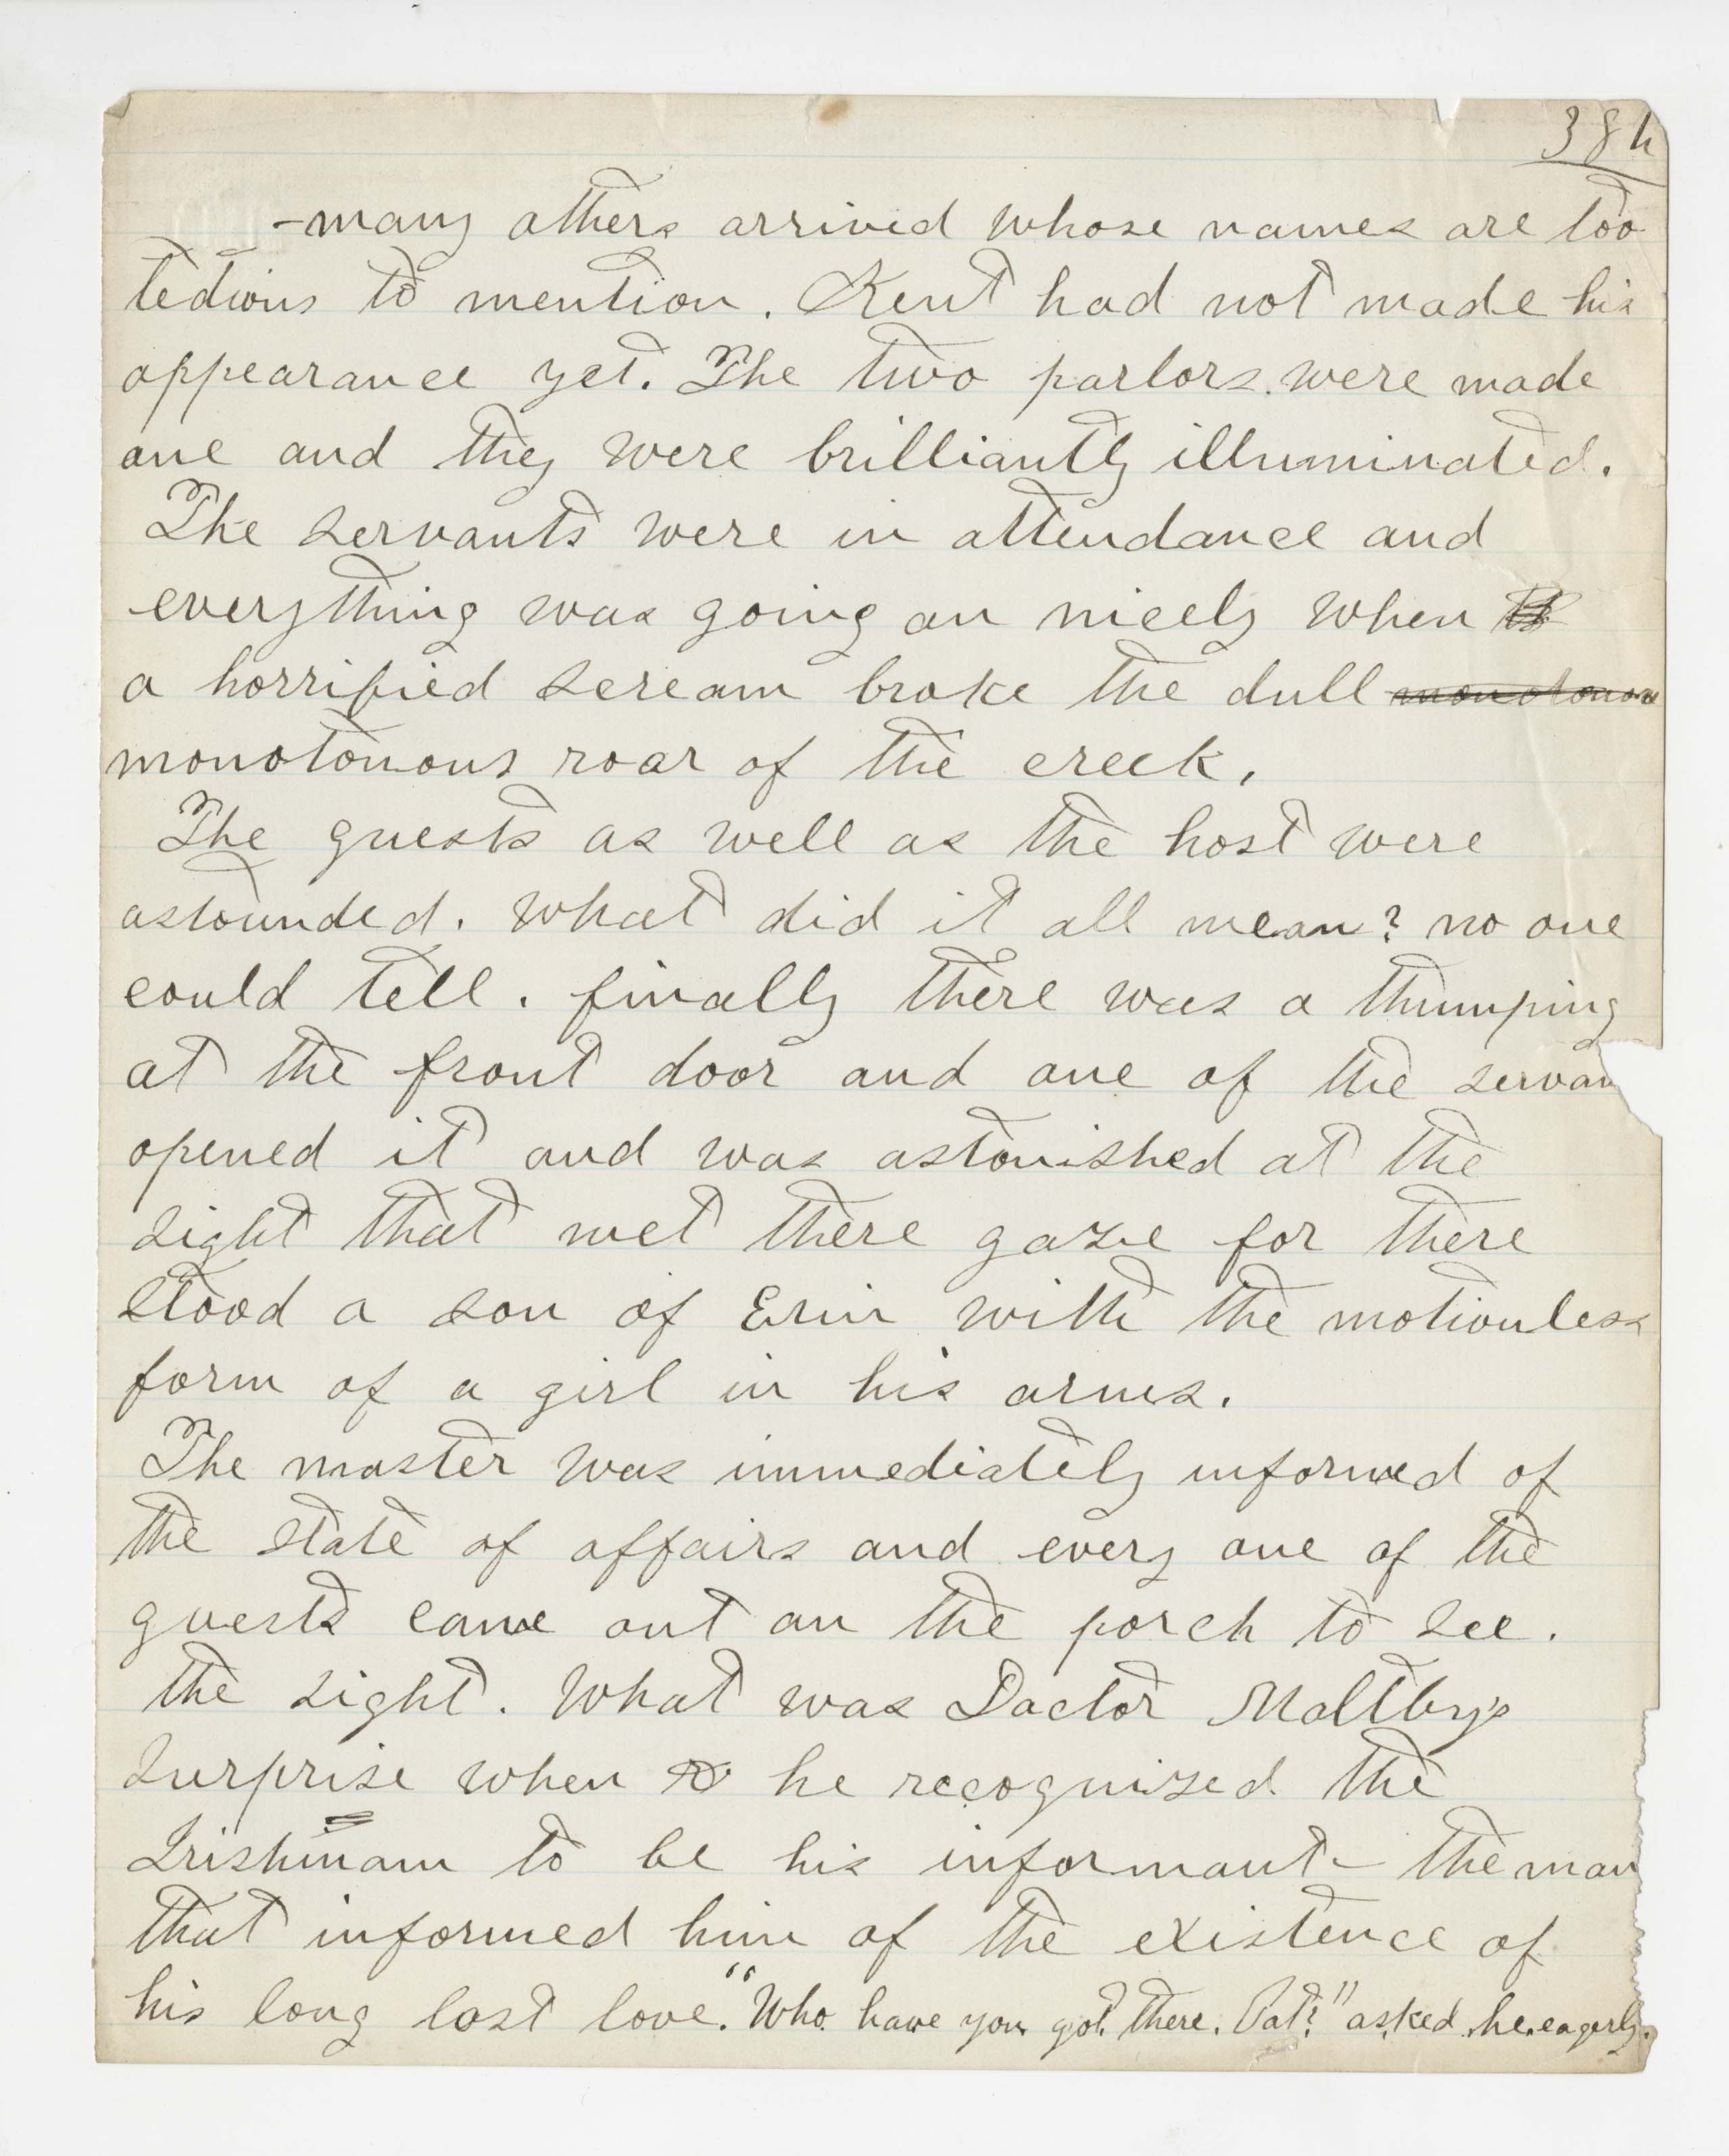 384
-many others arrived whose names are too
tedious to mention. Kent had not made his
appearance yet. The two parlors were made
one and they were brilliantly illuminated.
The servants were in attendance and
everything was going on nicely when
a horrified scream broke the dull monotonou
monotonous roar of the creek.
The guests as well as the host were
astounded. What did it all mean? no one
could tell. finally there was a thumping
at the front door and one of the servan
opened it and was astonished at the
sight that met there gaze for there
stood a son of Erin with the motionless
form of a girl in his arms.
The master was immediately informed of
the state of affairs and every one of the
guests came out on the porch to see.
the sight. What was Doctor Maltby's
surprise when he recognized the
Irishman to be his informant - the man
that informed him of the existence of
his long lost love. "Who have you got there. Pat?" asked he eagerly.